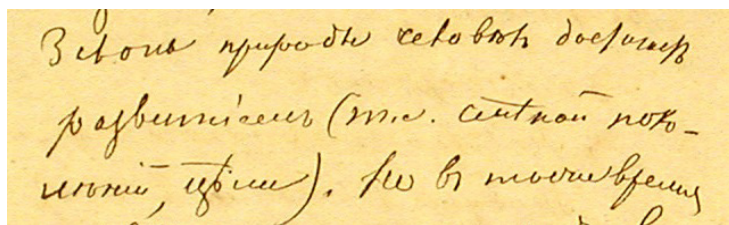 Закона природы человѣкъ достигаетъ
развитіемъ (т.е. смѣной поко-
лѣній, цѣли). Но въ тоже время